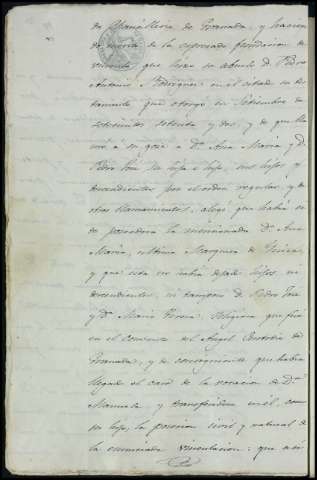 de Chancilleria de Granada, y hacien
do merito de la espresada fundacion de
vinculo que hizo su abuelo D. Pedro
Antonio Rodriguez en el citado su tes
tamento que otorgo en Setiembre de
setecientos setenta y dos, y de que lla
mó a su goce a Dª Ana Maria y D.
Pedro José su hija e hijo, sus hijos y
descendientes por el orden regular, y de
otros llamamientos, alegó que habia si
do poseedora la mencionada Dª Ana
Maria, ultima Marquesa de
y que esta no habia dejado hijos ni
descendientes, ni tampoco D. Pedro José
y Dª Maria Teresa, Religiosa que fué
en el Convento del Angel Custodio de
Granada, y de consiguiente que habia
llegado el caso de la vacacion de Dª
Manuela y transferidose en él, como
su hijo, la posesion civil y natural de
la enunciada vinculacion: que a si